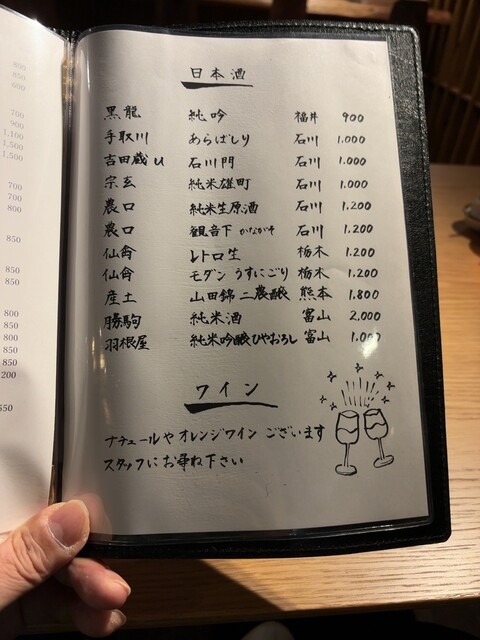 800
850
600
700
900
1,100
1,500
1,500
700
700
800
850
850
850
800
800
850
850
850
200
550
日本酒
黒龍 純吟 福井 900
手取川 あらばしり 石川 1.000
吉田蔵u 石川門 石川 1.000
宗玄 純米雄町 石川 1.000
農口 純米生原酒 石川 1.200
農口 観音下 かながそ 石川 1.200
仙禽 レトロ生 栃木 1.200
仙禽 モダン うすにごり 栃木 1.200
産土 山田錦 二農醸 熊本 1.800
勝駒 純米酒 富山 2,000
羽根屋 純米吟醸ひやおろし 富山 1.000
ワイン
ナチュールや オレンジワイン ございます
スタッフに お尋ね下さい